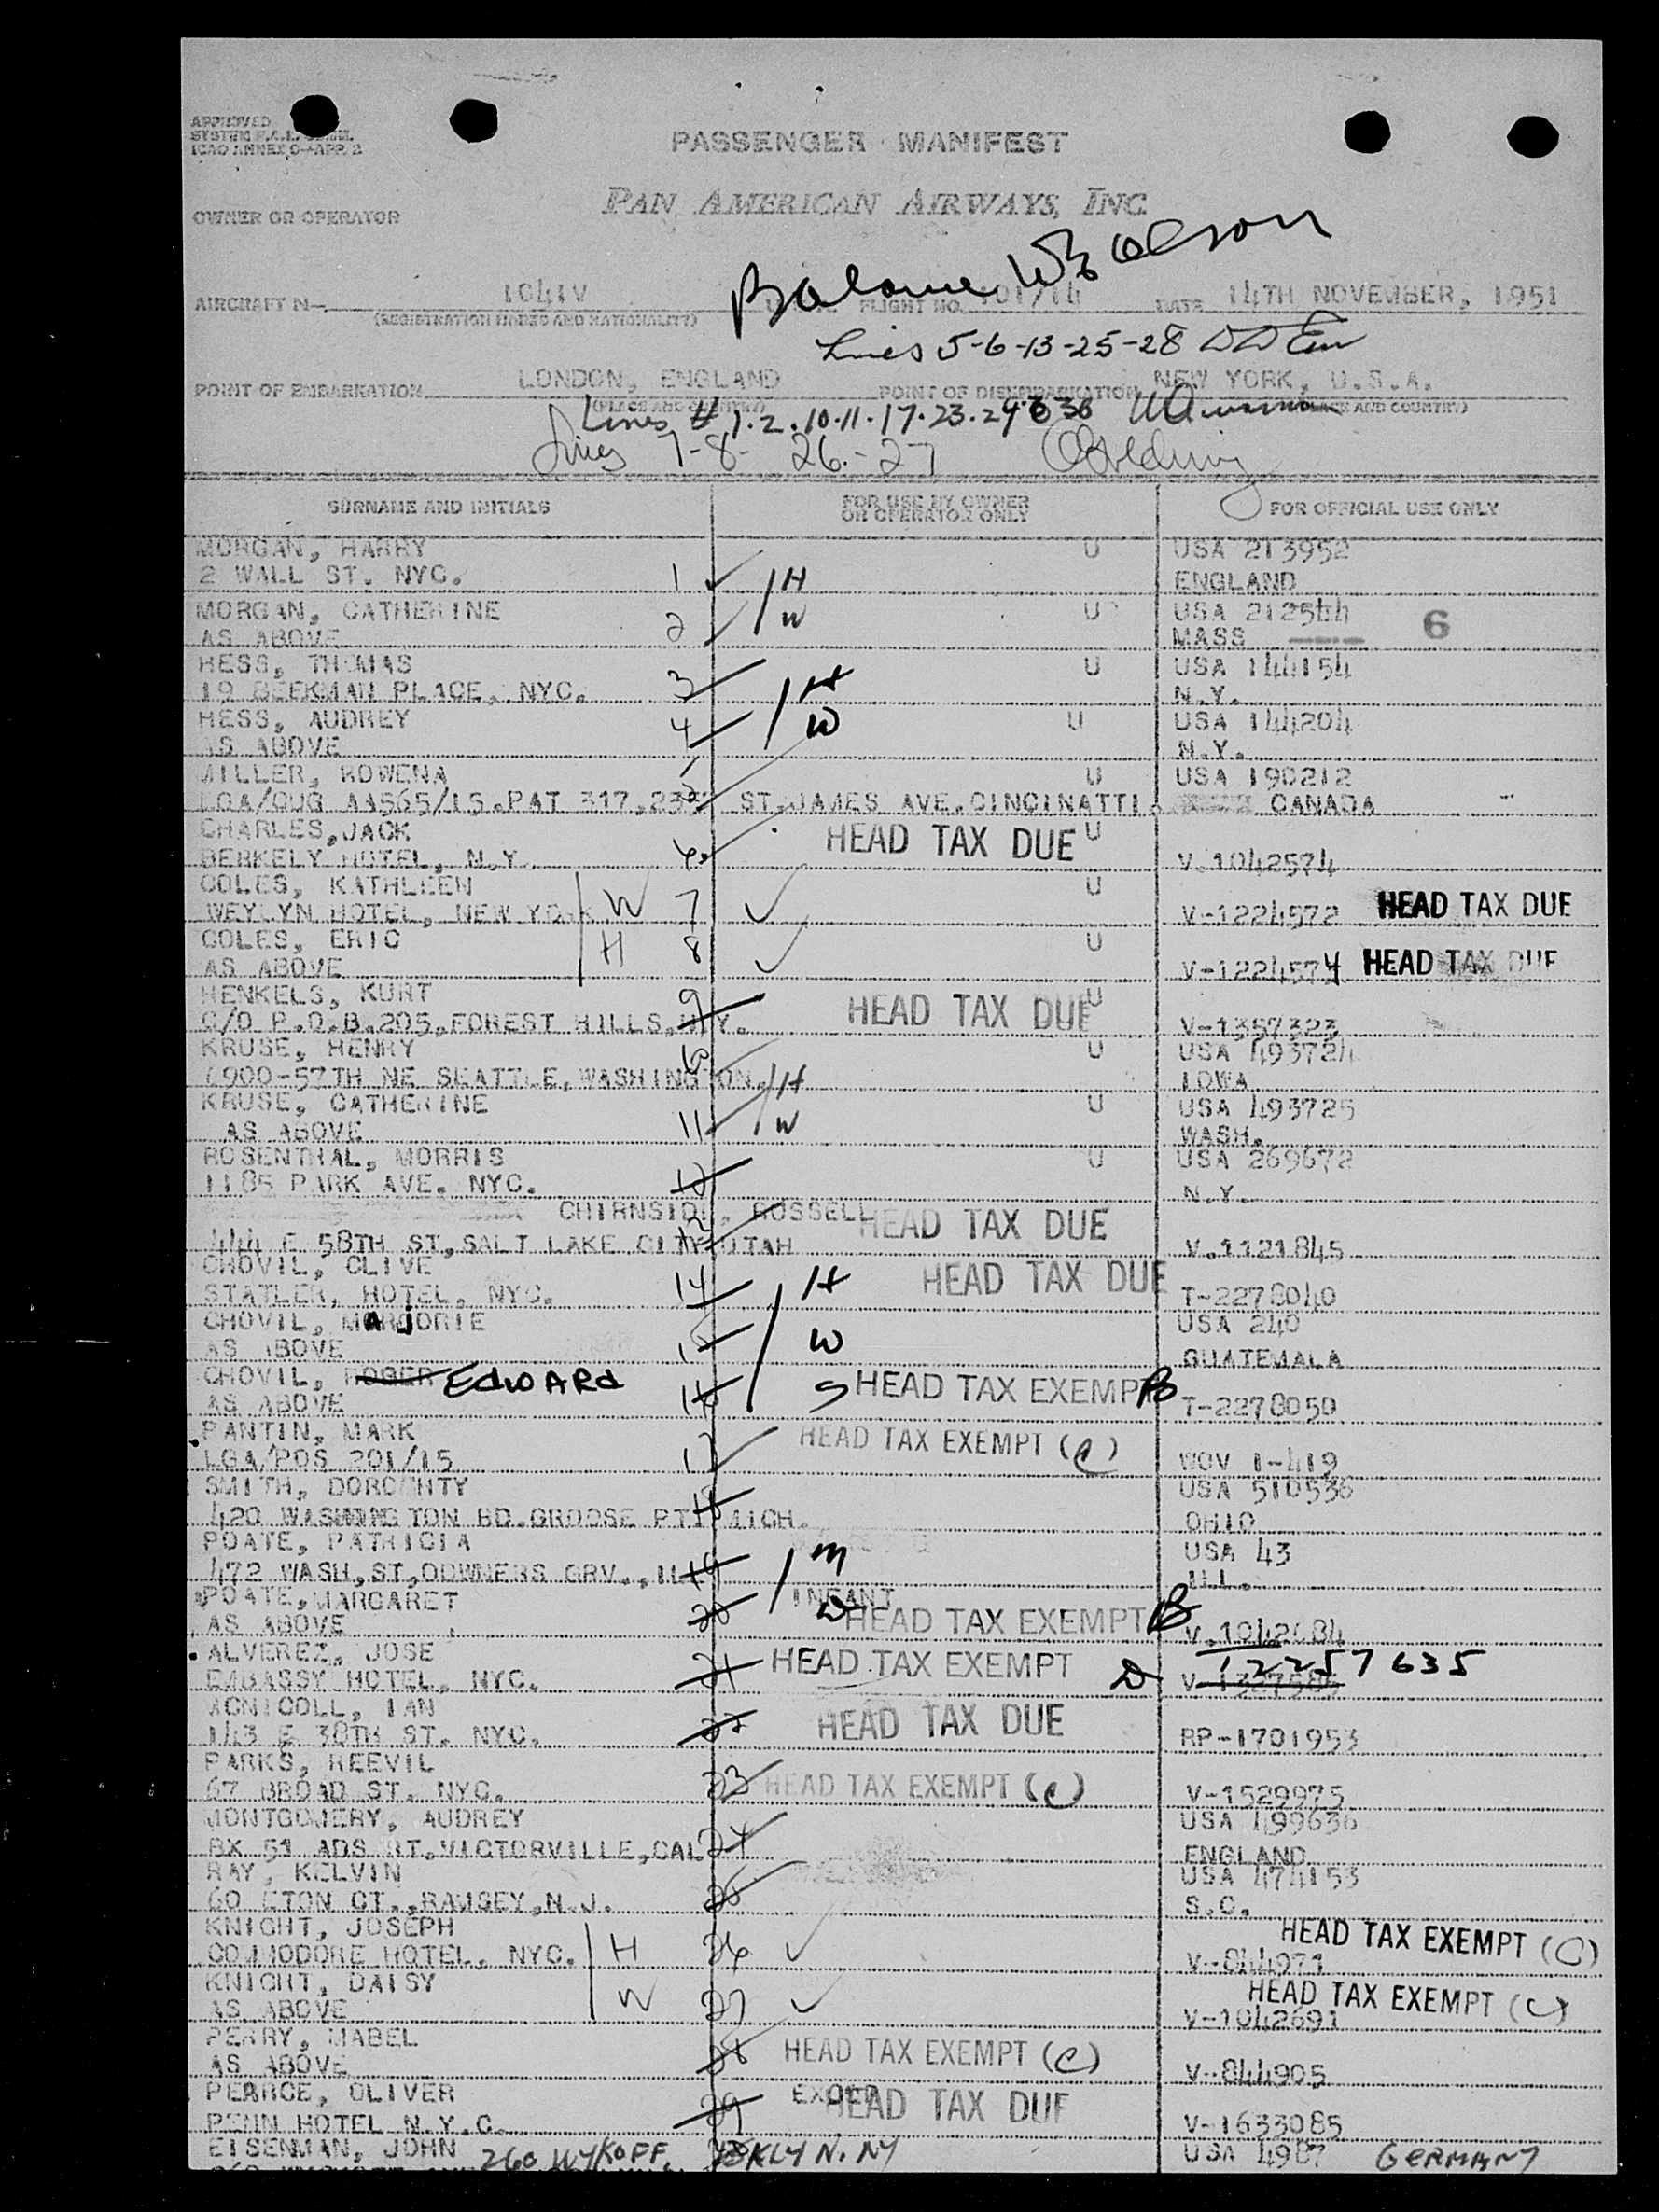 APPROVED
ICAO ANNEX 9-APP. 2
PASSENGER MANIFEST
OWNER OR OPERATOR
PAN AMERICAN AIRWAYS, INC.
Balance
AIRCRAFT N- 1041V FLIGHT NO. 101/14 DATE 14TH NOVEMBER, 1951
(REGISTRATION MARKS AND NATIONALITY)
Lines 5-6-13-25-28
POINT OF EMBARKATION LONDON, ENGLAND POINT OF DISEMBARKATION NEW YORK, U.S.A.
(PLACE AND COUNTRY) (PLACE AND COUNTRY)
Lines # 1.2.10.11.17.23.24 30
Lines 7-8- 26.-27
SURNAME AND INITIALS FOR USE BY OWNER OR OPERATOR ONLY FOR OFFICIAL USE ONLY
MORGAN, HARRY U USA 213952
2 WALL ST. NYC. 1 H ENGLAND
MORGAN, CATHERINE U USA 212544 6
AS ABOVE 2 W MASS
HESS, THOMAS U USA 144154
19 BEEKMAN PLACE, NYC. 3 H N.Y.
HESS, AUDREY U USA 144204
AS ABOVE 4 W N.Y.
MILLER, ROWENA U USA 190212
LGA/CUG AA565/15.PAT 317,2332 ST.JAMES AVE.CINCINATTI. 5 CANADA
CHARLES,JACK HEAD TAX DUE U
BERKELY HOTEL, N.Y. 6 V.1042574
COLES, KATHLEEN U
WEYLYN HOTEL, NEW YORK W 7 V-1224572 HEAD TAX DUE
COLES, ERIC U
AS ABOVE H 8 V-1224574 HEAD TAX DUE
HENKELS, KURT 9 HEAD TAX DUE U
C/O P.O.B.205,FOREST HILLS,N.Y. V-1357323
KRUSE, HENRY 10 U USA 493724
6900-57TH NE SEATTLE,WASHINGTON. H IOWA
KRUSE, CATHERINE U USA 493725
AS ABOVE 11 W WASH.
ROSENTHAL, MORRIS U USA 269672
1185 PARK AVE. NYC. 12 N.Y.
CHIRNSIDE, RUSSELL HEAD TAX DUE
444 E 58TH ST,SALT LAKE CITY UTAH 13 V.1121845
CHOVIL, CLIVE 14 H HEAD TAX DUE
STATLER, HOTEL, NYC. T-2278040
CHOVIL, MARJORIE USA 240
AS ABOVE 15 W GUATEMALA
CHOVIL, ROGER EdwARd S HEAD TAX EXEMPT B
AS ABOVE 16 T-2278050
PANTIN, MARK HEAD TAX EXEMPT (C)
LGA/POS 201/15 17 WOV 1-419
SMITH, DOROTHTY USA 510536
420 WASHINGTON BD.GROOSE PTE MICH. 18 OHIO
POATE, PATRICIA M USA 43
472 WASH,ST,DOWNERS GRV.,ILL 19 ILL.
POATE,MARGARET INFANT
AS ABOVE 20 D HEAD TAX EXEMPT B V.1042684
ALVEREZ, JOSE 12257635
EMBASSY HOTEL, NYC. 21 HEAD TAX EXEMPT D
MCNICOLL, IAN
143 E 38TH ST. NYC. 22 HEAD TAX DUE RP-1701953
PARKS, REEVIL
67 BROAD ST. NYC. 23 HEAD TAX EXEMPT (C) V-1529975
MONTGOMERY, AUDREY USA 499636
BX 51 ADS RT.VICTORVILLE,CAL 24 ENGLAND
RAY, KELVIN USA 474153
60 ETON CT.,RAMSEY,N.J. 25 S.C.
KNIGHT, JOSEPH HEAD TAX EXEMPT (C)
COMMODORE HOTEL, NYC. H 26 V-844971
KNIGHT, DAISY HEAD TAX EXEMPT (C)
AS ABOVE W 27 V-1042691
PERRY, MABEL
AS ABOVE 28 HEAD TAX EXEMPT (C) V-844905
PEARCE, OLIVER
PENN HOTEL N.Y.C. 29 HEAD TAX DUE V-1633085
EISENMAN, JOHN 260 WYKOFF, BKLYN. NY USA 4987 GERMANY